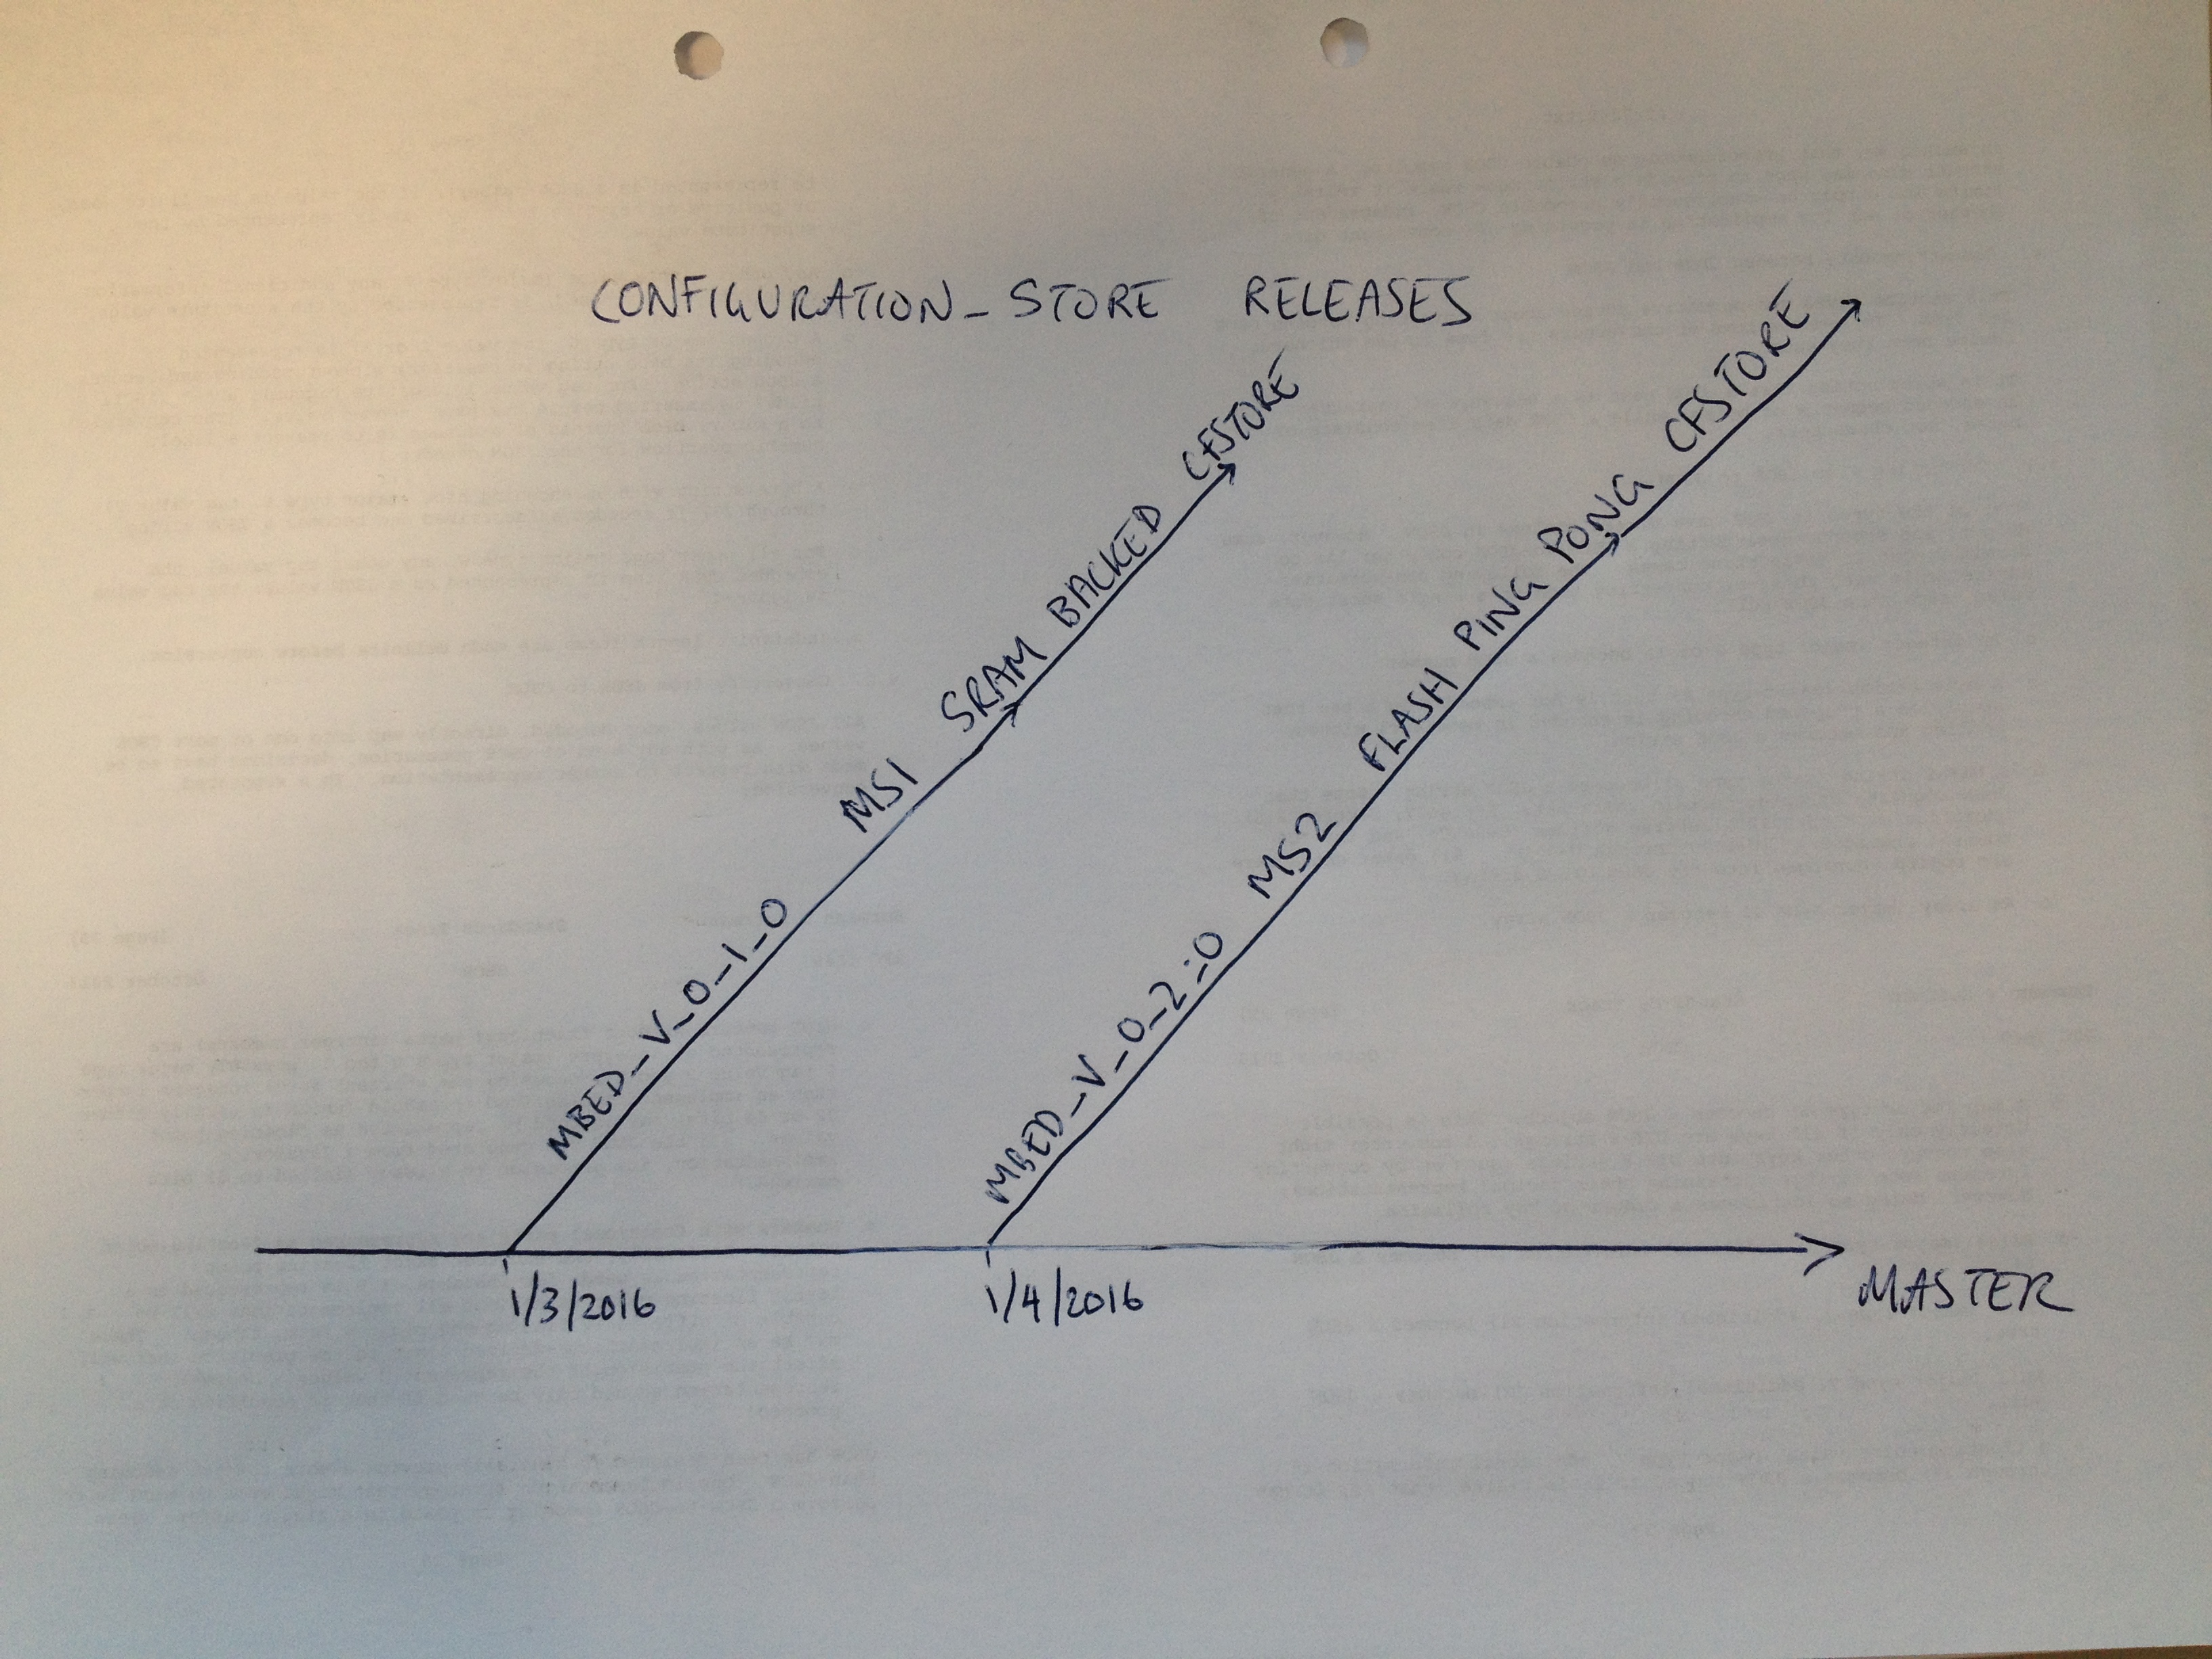 CONFIGURATION_STORE RELEASES
MBED_V_0_1_0 MS1 SRAM BACKED CFSTORE
MBED_V_0_2_0 MS2 FLASH PING PONG CFSTORE
1/3/2016
1/4/2016
MASTER